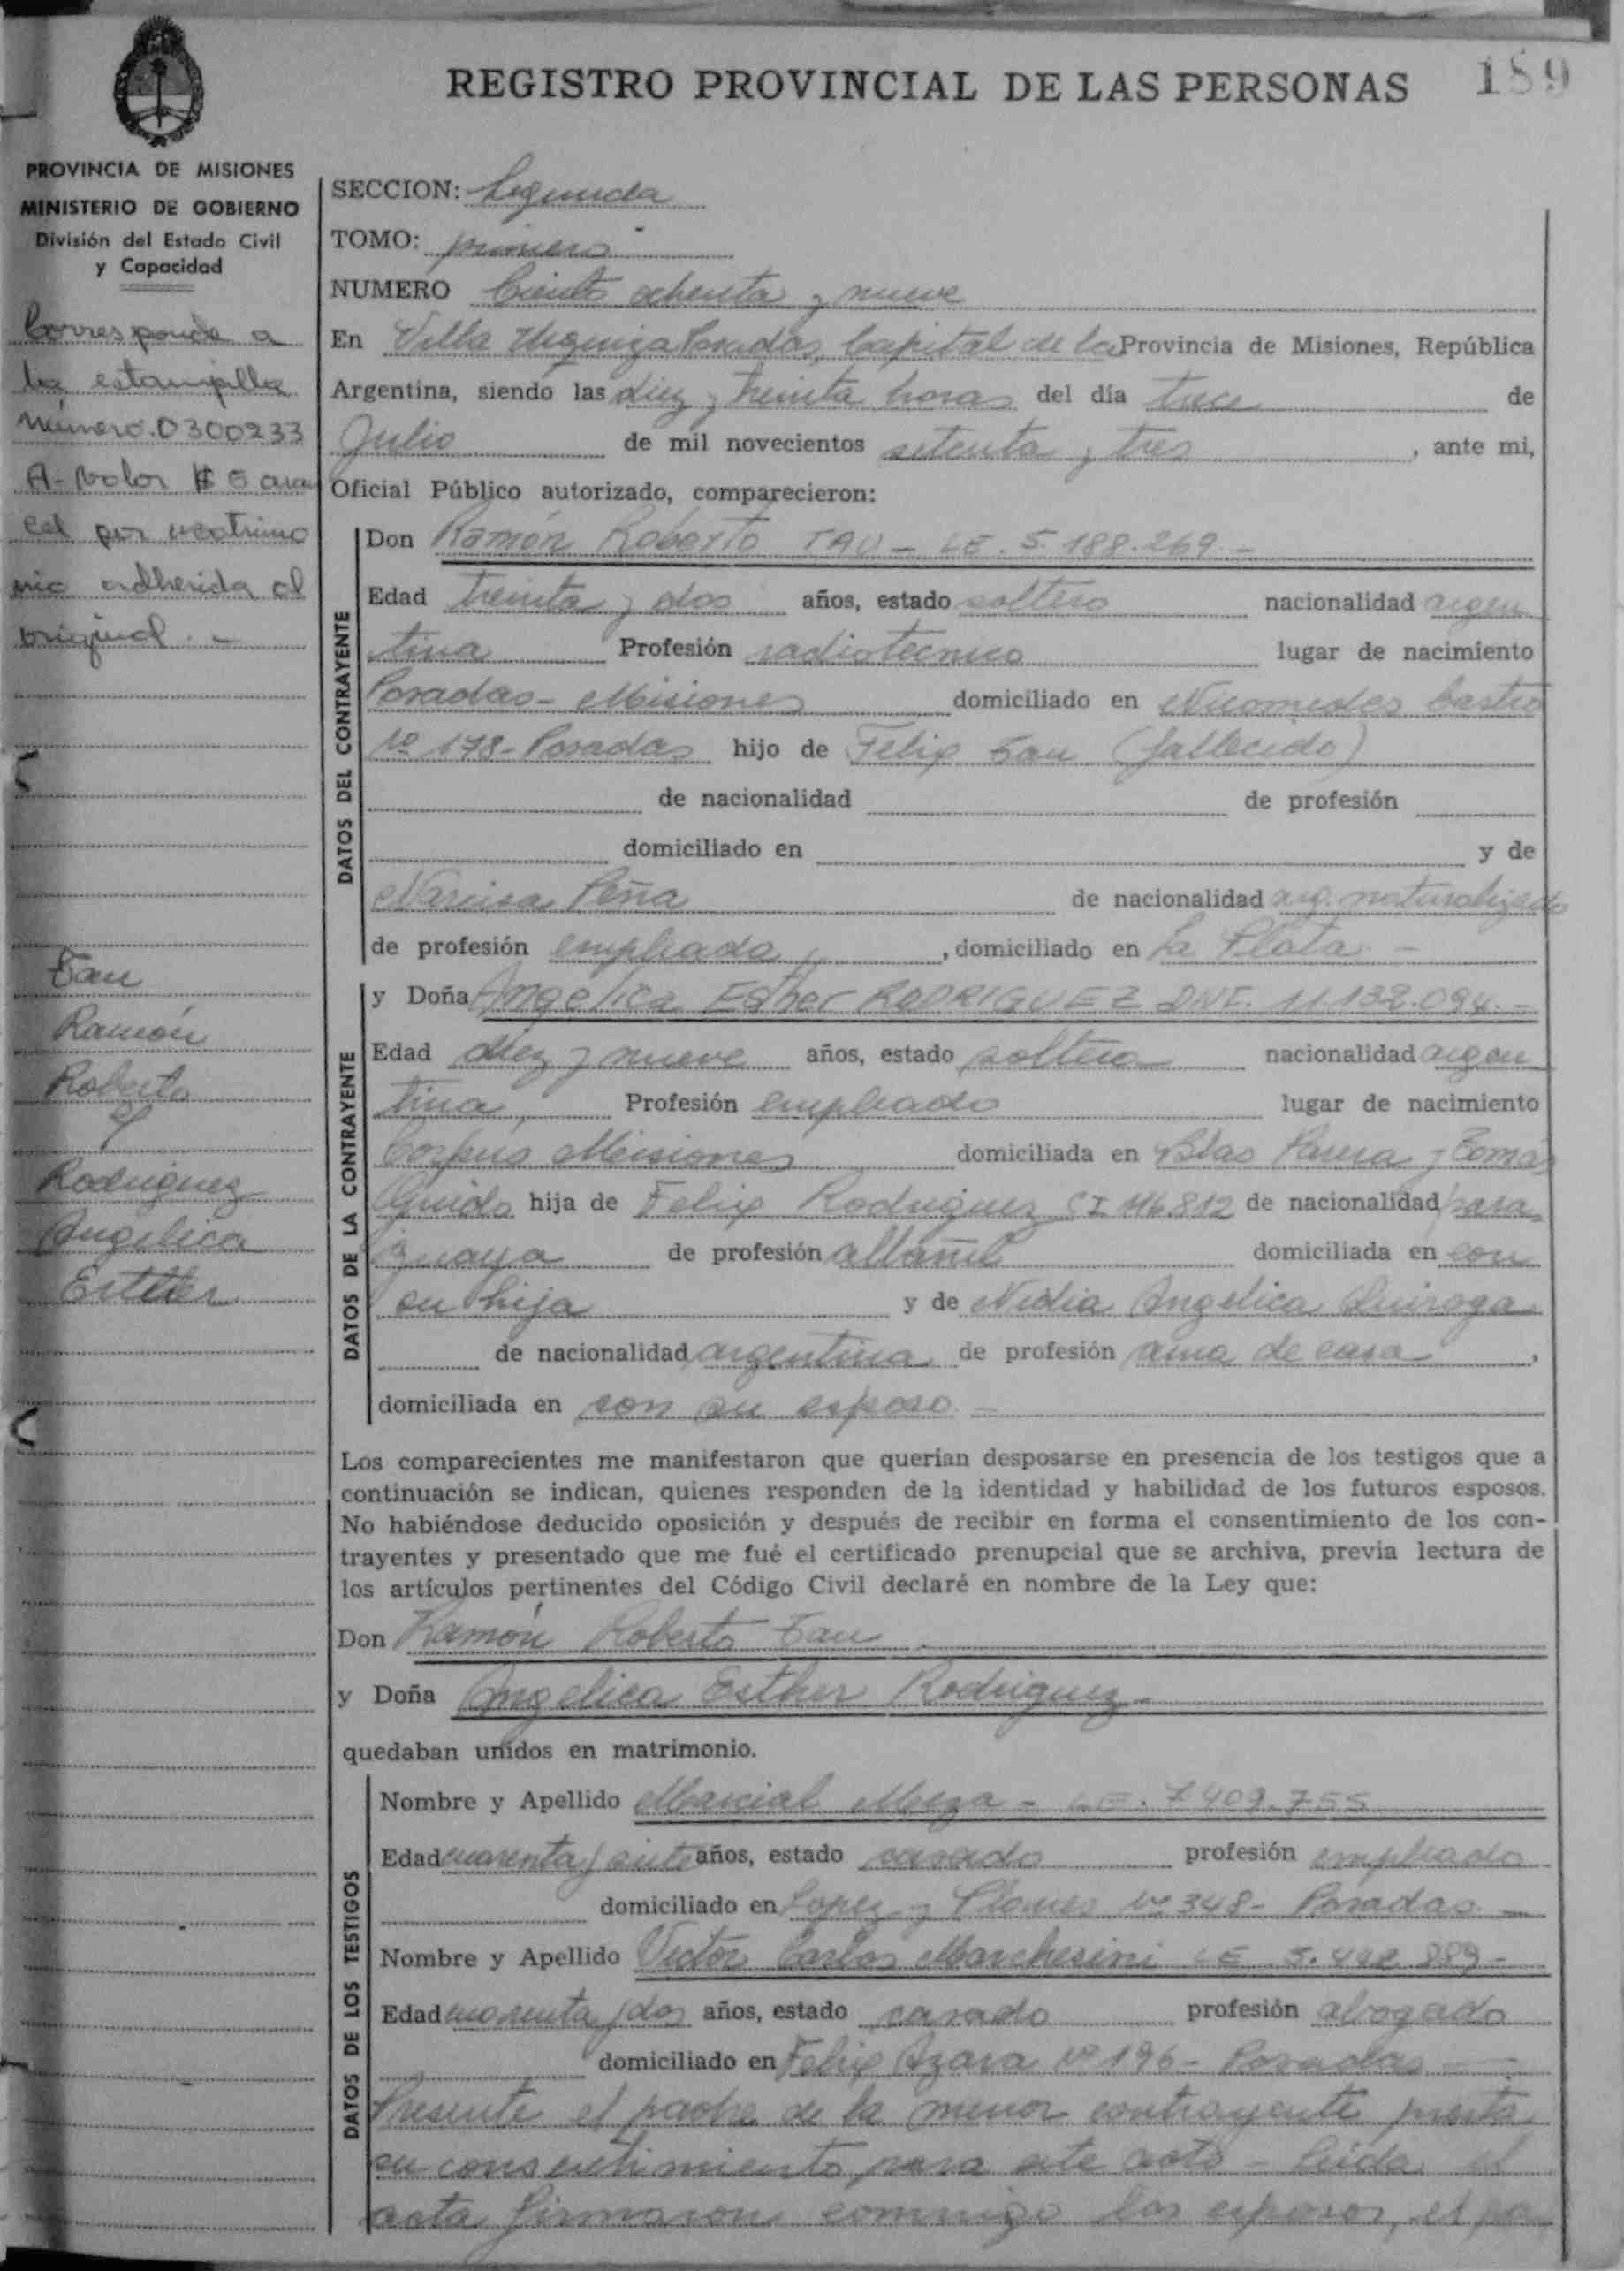 189
REGISTRO PROVINCIAL DE LAS PERSONAS
PROVINCIA DE MISIONES
MINISTERIO DE GOBIERNO
División del Estado Civil
y Capacidad
Corresponde a
la estampilla
número 0300233
A- valor $ 5 aran
cel por matrimo
nio adherida al
original. -
Tau
Ramón
Roberto
y
Rodriguez
Angelica
Esther
SECCION: Segunda
TOMO: primero
NUMERO Ciento ochenta y nueve
En Villa Urquiza Posadas, Capital de la Provincia de Misiones, República
Argentina, siendo las diez y treinta horas del día trece de
Julio de mil novecientos setenta y tres, ante mi,
Oficial Público autorizado, comparecieron:
DATOS DEL CONTRAYENTE
Don Ramón Roberto TAU - LE. 5.188.269 -
Edad treinta y dos años, estado soltero nacionalidad argen
tina Profesión radiotecnico lugar de nacimiento
Posadas - Misiones domiciliado en Nicomedes Castro
Nº 178 - Posadas hijo de Felix Tau (fallecido)
de nacionalidad de profesión
domiciliado en y de
Narcisa Peña de nacionalidad arg. naturalizada
de profesión empleada, domiciliado en La Plata -
DATOS DE LA CONTRAYENTE
y Doña Angelica Esther RODRIGUEZ DNI. 11.132.094. -
Edad diez y nueve años, estado soltera nacionalidad argen
tina, Profesión empleada lugar de nacimiento
Corpus Misiones domiciliada en Blas Parera y Tomás
Guido hija de Felix Rodriguez CI 116.812 de nacionalidad para
guaya de profesión albañil domiciliada en con
su hija y de Nidia Angelica Quiroga
de nacionalidad argentina de profesión ama de casa,
domiciliada en con su esposo. -
Los comparecientes me manifestaron que querían desposarse en presencia de los testigos que a
continuación se indican, quienes responden de la identidad y habilidad de los futuros esposos.
No habiéndose deducido oposición y después de recibir en forma el consentimiento de los con-
trayentes y presentado que me fué el certificado prenupcial que se archiva, previa lectura de
los artículos pertinentes del Código Civil declaré en nombre de la Ley que:
Don Ramón Roberto Tau
y Doña Angelica Esther Rodriguez -
quedaban unidos en matrimonio.
DATOS DE LOS TESTIGOS
Nombre y Apellido Marcial Meza - LE. 7.409.755
Edad cuarenta y siete años, estado casado profesión empleado
domiciliado en Lopez y Planes Nº 348 - Posadas -
Nombre y Apellido Victor Carlos Marchesini LE 5. 889 -
Edad cuarenta y dos años, estado casado profesión abogado
domiciliado en Felix Azara Nº 196 - Posadas -
Presente el padre de la menor contrayente presta
su consentimiento para este acto - Leida el
acta firmaron conmigo los esposos, el pa